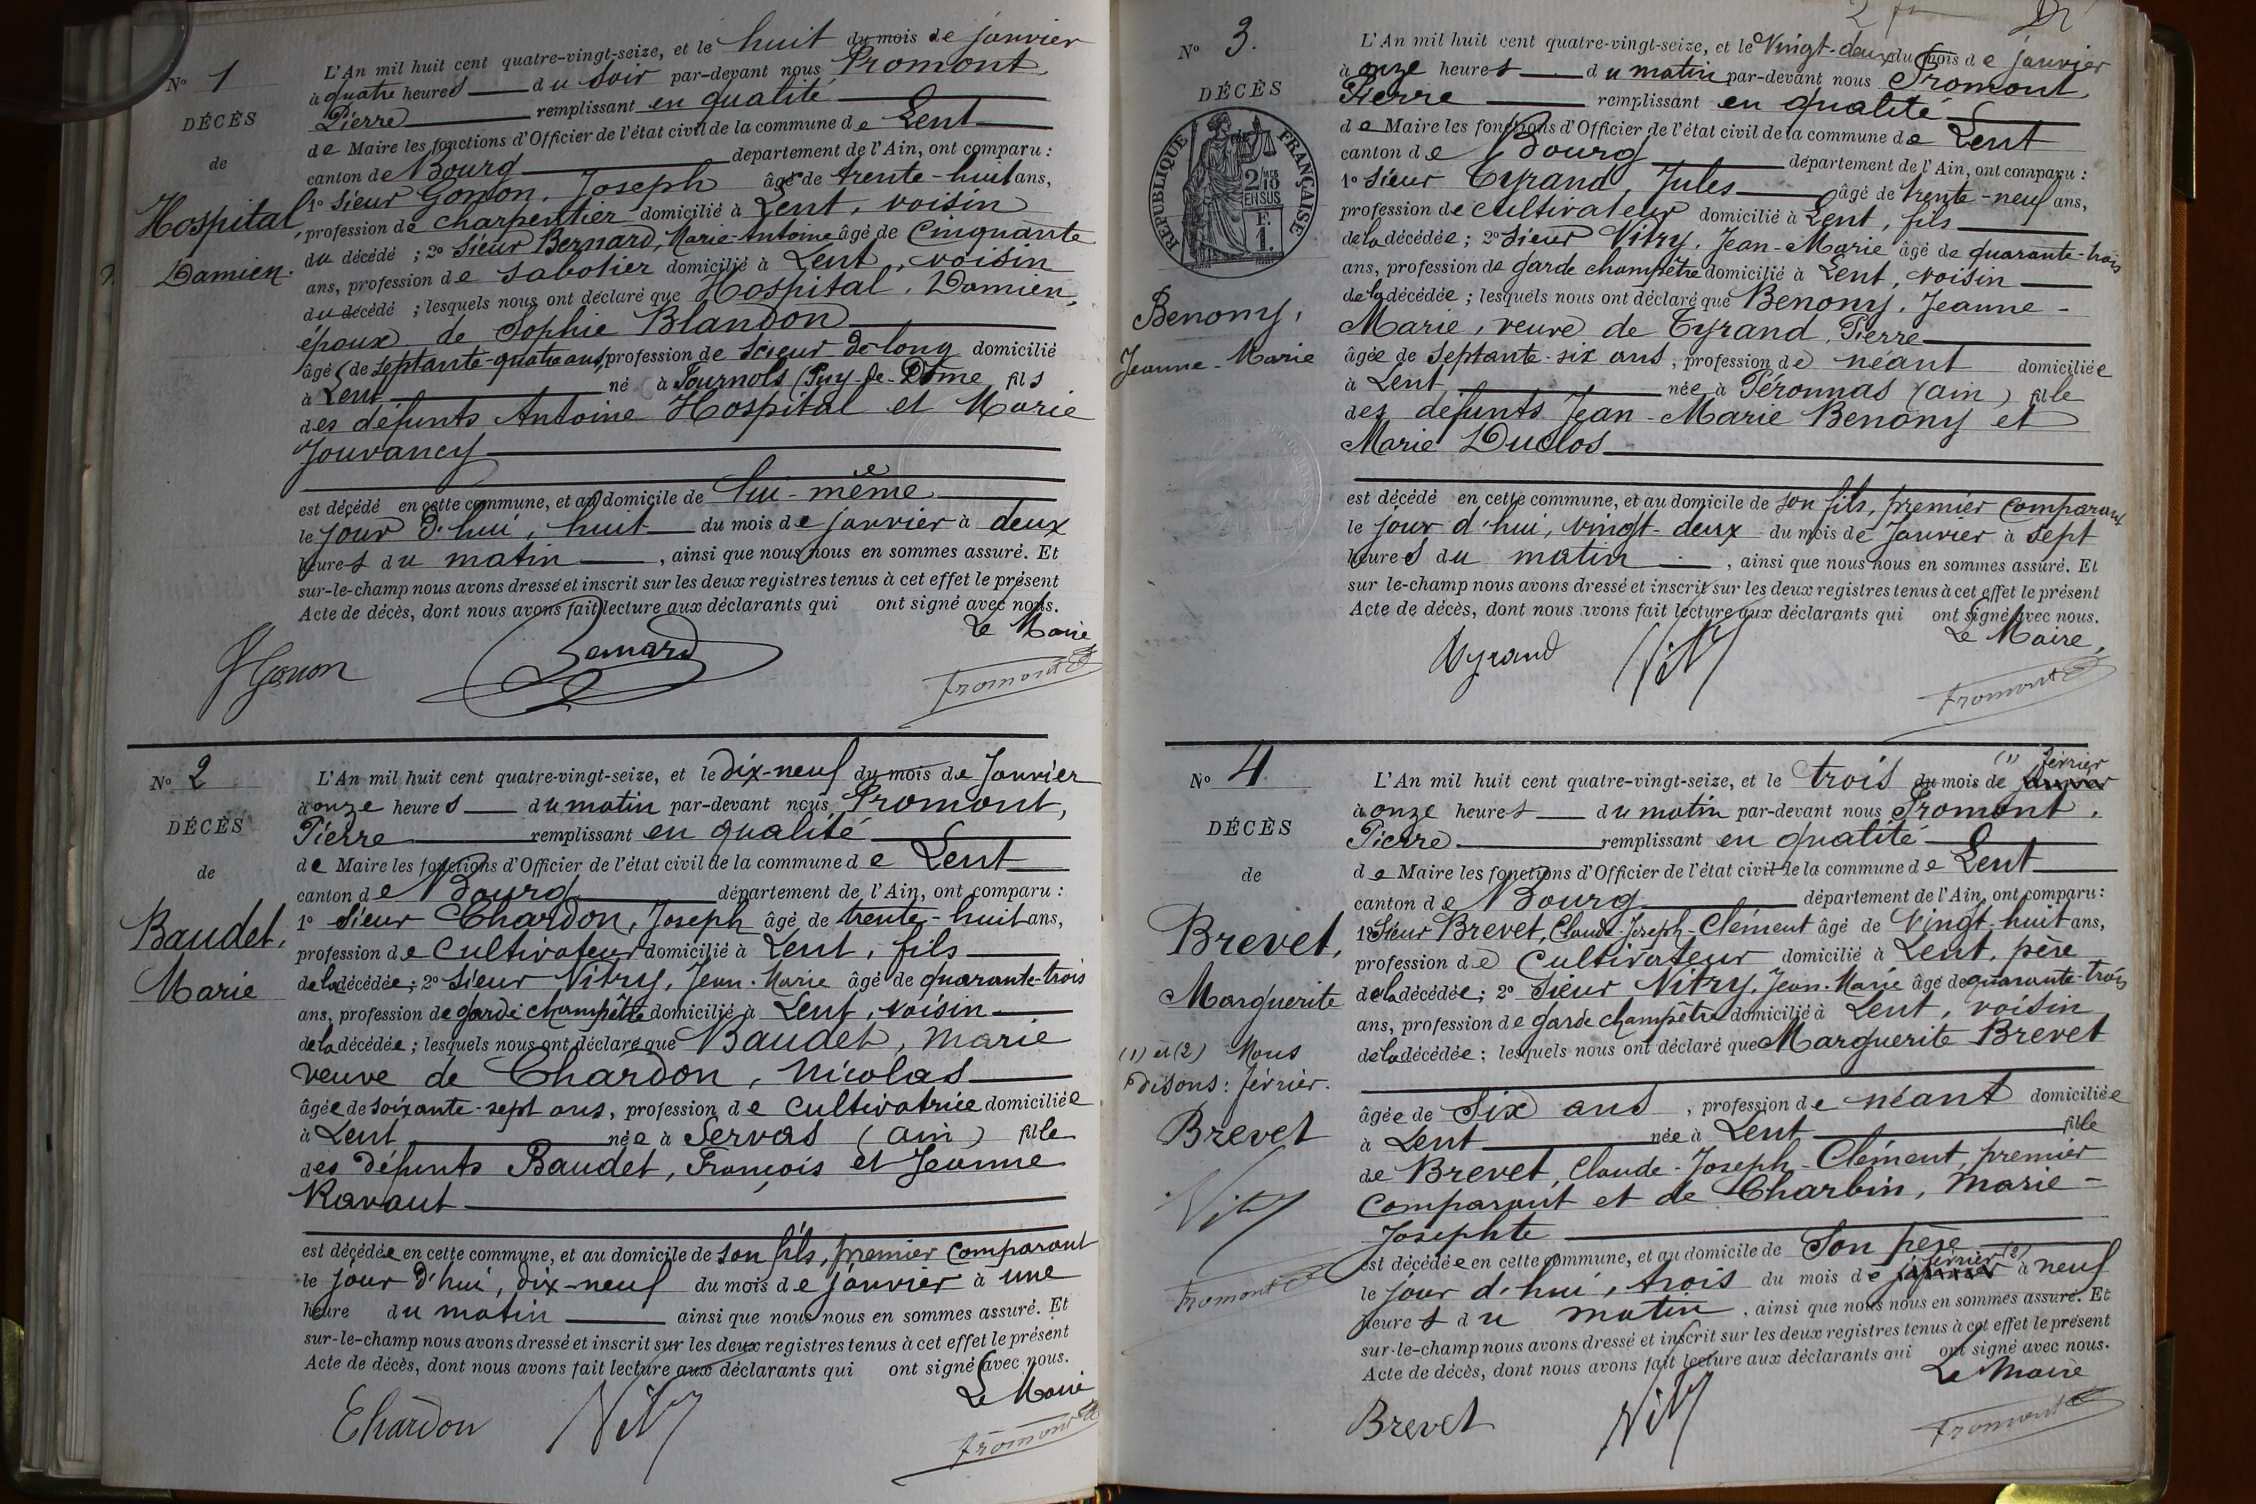 N° 1
DÉCÈS
de
Hospital,
Damien.
L'An mil huit cent quatre-vingt-seize, et le huit du mois de janvier
à quatre heures du soir par-devant nous Fromont,
Pierre remplissant en qualité
de Maire les fonctions d'Officier de l'état civil de la commune de Lent
canton de Bourg département de l'Ain, ont comparu :
1° Sieur Gonon, Joseph âgé de trente-huit ans,
profession de charpentier domicilié à Lent, voisin
du décédé ; 2° Sieur Bernard, Marie-Antoine âgé de Cinquante
ans, profession de sabotier domicilié à Lent, voisin
du décédé ; lesquels nous ont déclaré que Hospital, Damien,
époux de Sophie Blandon
âgé de septante-quatre ans, profession de Scieur de long domicilié
à Lent né à Tournols (Puy-de-Dôme fils
des défunts Antoine Hospital et Marie
Jouvancy
est décédé en cette commune, et au domicile de lui-même
le jour d'hui, huit du mois de janvier à deux
heures du matin, ainsi que nous nous en sommes assuré. Et
sur-le-champ nous avons dressé et inscrit sur les deux registres tenus à cet effet le présent
Acte de décès, dont nous avons fait lecture aux déclarants qui ont signé avec nous.
Le Maire
JGonon Bernard Fromont
N° 2
DÉCÈS
de
Baudet,
Marie
L'An mil huit cent quatre-vingt-seize, et le dix-neuf du mois de Janvier
à onze heures du matin par-devant nous Fromont,
Pierre remplissant en qualité
de Maire les fonctions d'Officier de l'état civil de la commune de Lent
canton de Bourg département de l'Ain, ont comparu :
1° Sieur Chardon, Joseph âgé de trente-huit ans,
profession de Cultivateur domicilié à Lent, fils
de la décédée ; 2° Sieur Vitry, Jean-Marie âgé de quarante-trois
ans, profession de garde champêtre domicilié à Lent, voisin
de la décédée ; lesquels nous ont déclaré que Baudet, Marie
veuve de Chardon, Nicolas
âgée de soixante-sept ans, profession de Cultivatrice domiciliée
à Lent née à Servas (ain) fille
des défunts Baudet, François et Jeanne
Ravaut
est décédée en cette commune, et au domicile de son fils, premier comparant
le jour d'hui, dix-neuf du mois de janvier à une
heure du matin ainsi que nous nous en sommes assuré. Et
sur-le-champ nous avons dressé et inscrit sur les deux registres tenus à cet effet le présent
Acte de décès, dont nous avons fait lecture aux déclarants qui ont signé avec nous.
Le Maire
Chardon Vitry Fromont
N° 3.
DÉCÈS
RÉPUBLIQUE FRANÇAISE
2/10
EN SUS
F.
1.
Benony,
Jeanne-Marie
L'An mil huit cent quatre-vingt-seize, et le Vingt-deux du mois de janvier
à onze heures du matin par-devant nous Fromont,
Pierre remplissant en qualité
de Maire les fonctions d'Officier de l'état civil de la commune de Lent
canton de Bourg département de l'Ain, ont comparu :
1° Sieur Tyrand, Jules âgé de trente-neuf ans,
profession de cultivateur domicilié à Lent, fils
de la décédée ; 2° Sieur Vitry, Jean-Marie âgé de quarante-trois
ans, profession de garde champêtre domicilié à Lent, voisin
de la décédée ; lesquels nous ont déclaré que Benony, Jeanne-
Marie, veuve de Tyrand, Pierre
âgée de septante-six ans, profession de néant domiciliée
à Lent née à Péronnas (ain) fille
des défunts Jean-Marie Benony et
Marie Duclos
est décédé en cette commune, et au domicile de son fils, premier comparant
le jour d'hui, vingt-deux du mois de Janvier à sept
heures du matin, ainsi que nous nous en sommes assuré. Et
sur-le-champ nous avons dressé et inscrit sur les deux registres tenus à cet effet le présent
Acte de décès, dont nous avons fait lecture aux déclarants qui ont signé avec nous.
Le Maire,
Tyrand Vitry Fromont
N° 4.
DÉCÈS
de
Brevet,
Marguerite
(1) et (2) Nous
disons : février.
Brevet
Vitry
Fromont
L'An mil huit cent quatre-vingt-seize, et le trois du mois de janvier (1) février
à onze heures du matin par-devant nous Fromont,
Pierre remplissant en qualité
de Maire les fonctions d'Officier de l'état civil de la commune de Lent
canton de Bourg département de l'Ain, ont comparu :
1° Sieur Brevet, Claude-Joseph-Clément âgé de Vingt-huit ans,
profession de Cultivateur domicilié à Lent, père
de la décédée ; 2° Sieur Vitry, Jean-Marie âgé de quarante-trois
ans, profession de garde champêtre domicilié à Lent, voisin
de la décédée ; lesquels nous ont déclaré que Marguerite Brevet
âgée de Six ans, profession de néant domiciliée
à Lent née à Lent fille
de Brevet, Claude-Joseph-Clément, premier
comparant et de Charbin, Marie-
Josephte
est décédée en cette commune, et au domicile de Son père
le jour d'hui, trois du mois de janvier février (2) à neuf
heures du matin, ainsi que nous nous en sommes assuré. Et
sur-le-champ nous avons dressé et inscrit sur les deux registres tenus à cet effet le présent
Acte de décès, dont nous avons fait lecture aux déclarants qui ont signé avec nous.
Le Maire
Brevet Vitry Fromont